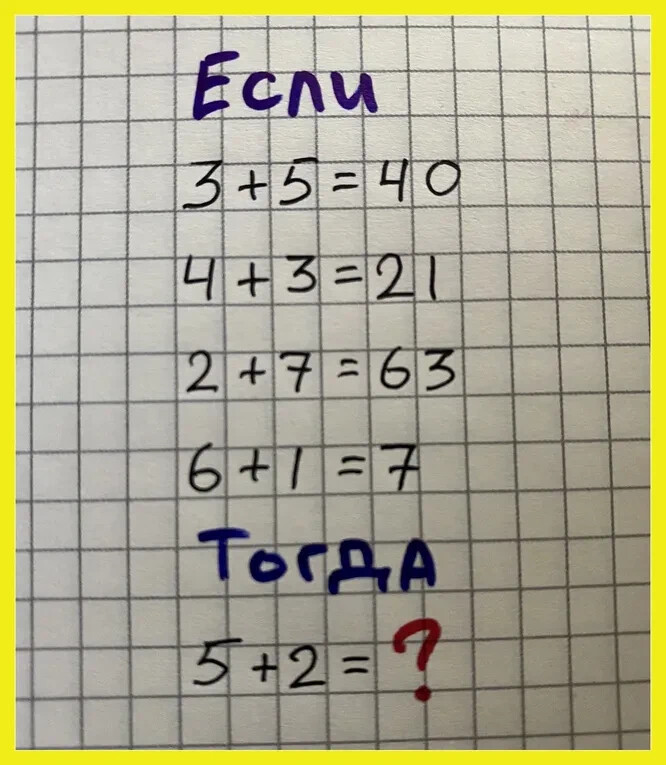 Если
3+5=40
4+3=21
2+7=63
6+1=7
Тогда
5+2=?